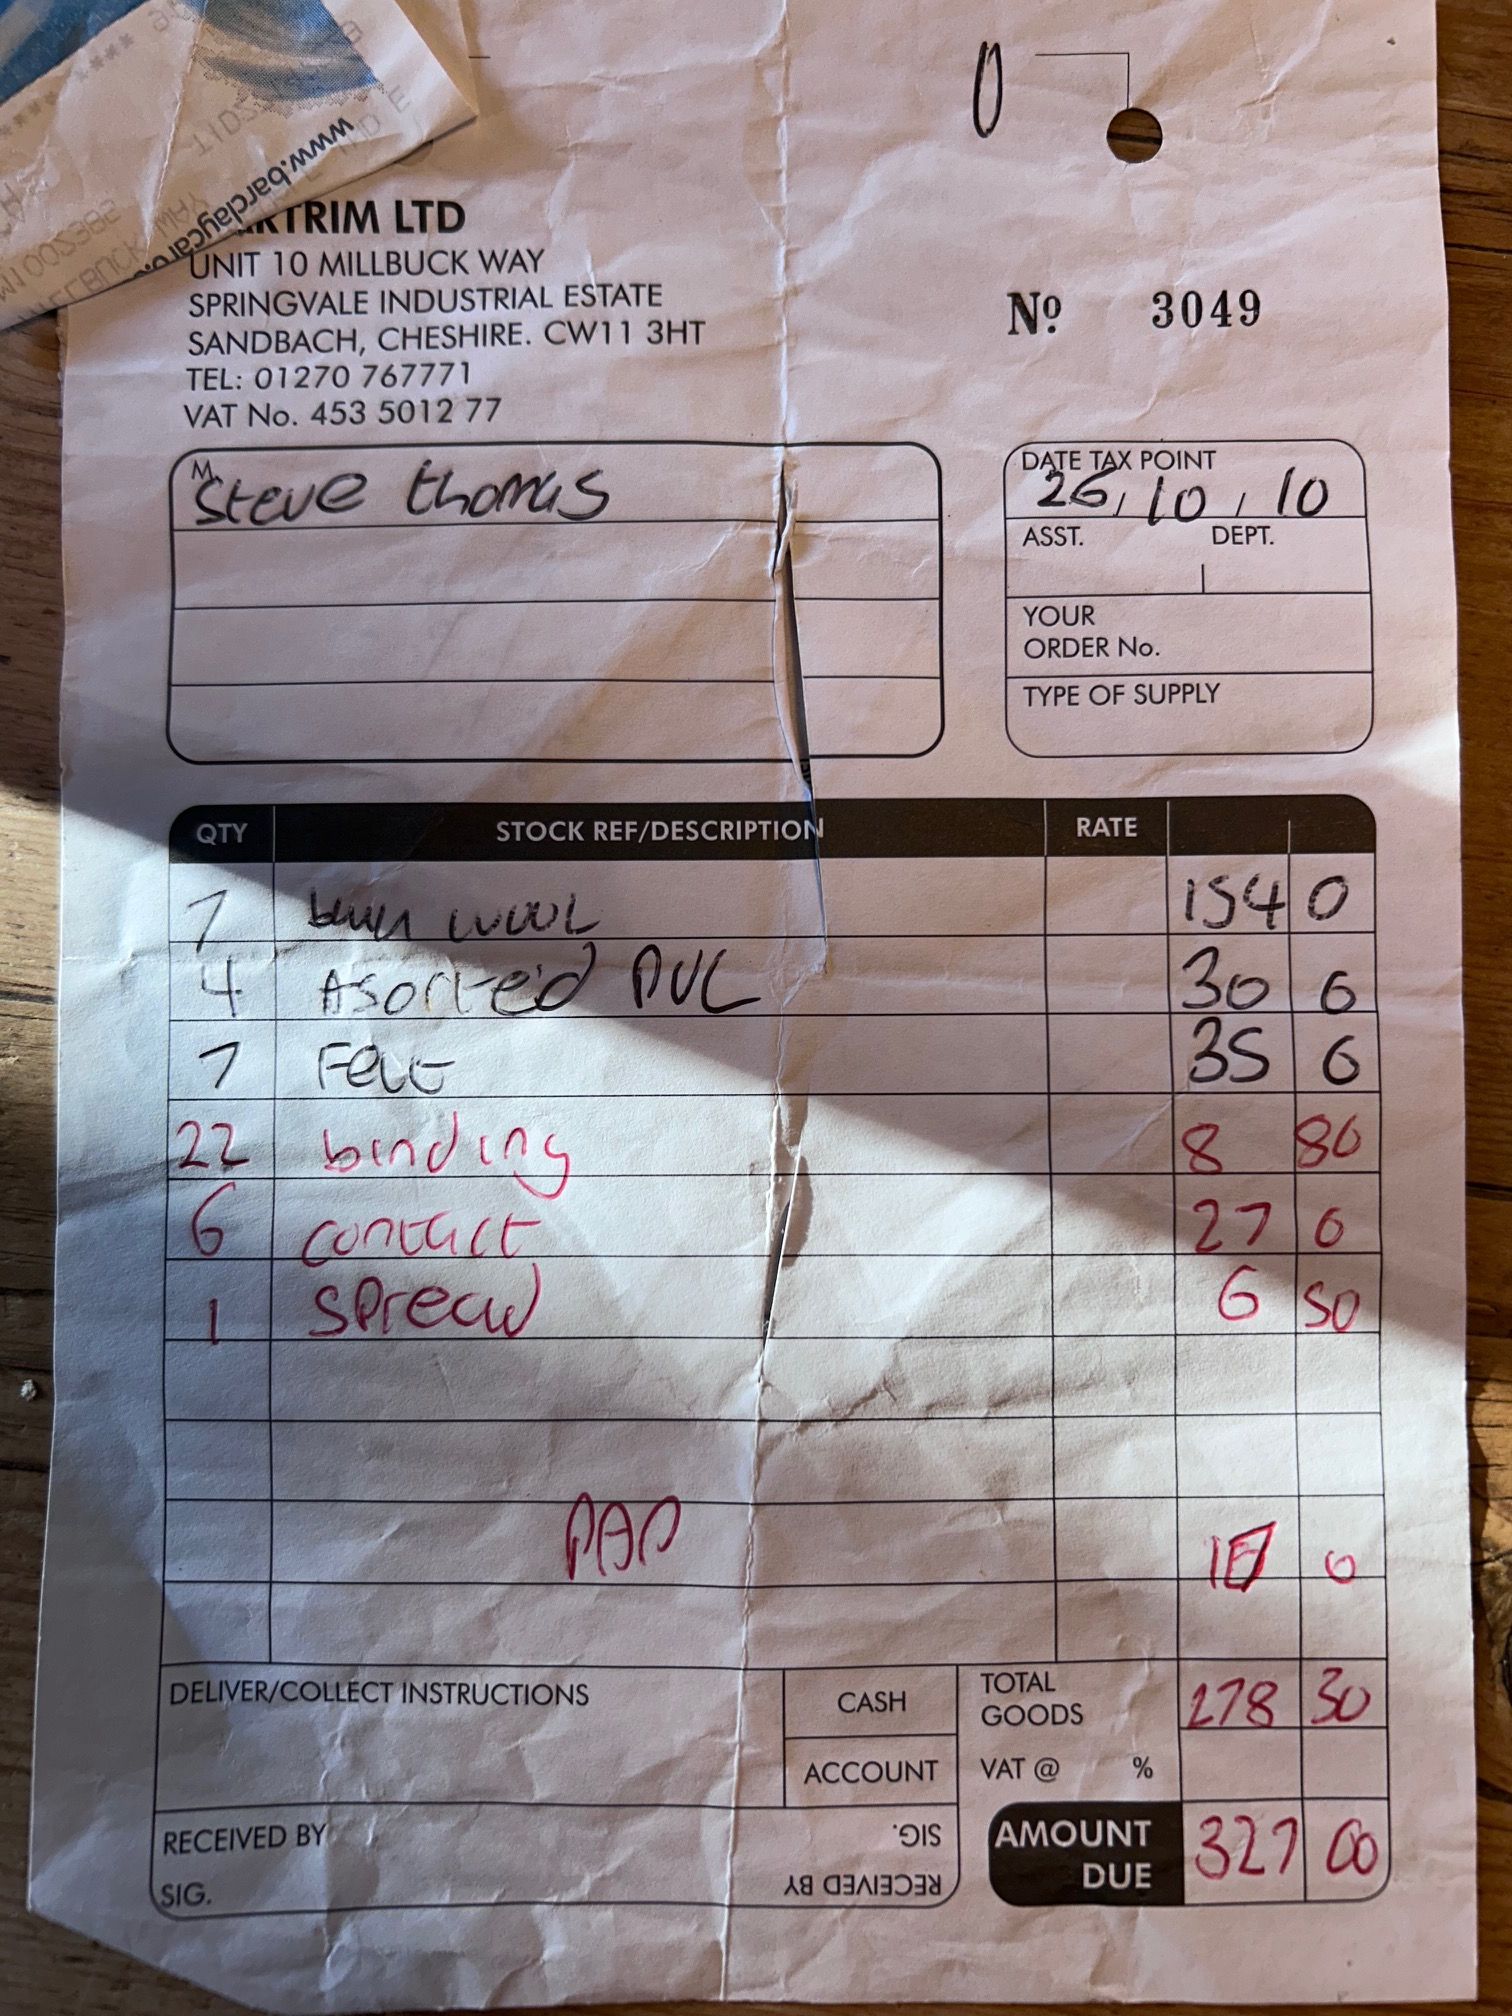 www.barclaycard.
RTRIM LTD
UNIT 10 MILLBUCK WAY
SPRINGVALE INDUSTRIAL ESTATE
SANDBACH, CHESHIRE. CW11 3HT
TEL: 01270 767771
VAT No. 453 5012 77
0
No. 3049
M
Steve thomas
DATE TAX POINT
26, 10, 10
ASST. DEPT.
YOUR
ORDER No.
TYPE OF SUPPLY
QTY STOCK REF/DESCRIPTION RATE
7 wool 154 0
4 Asorted PVC 30 0
7 Felt 35 0
22 binding 8 80
6 contact 27 0
1 spread 6 50
0
DELIVER/COLLECT INSTRUCTIONS CASH TOTAL GOODS 278 30
ACCOUNT VAT @ %
RECEIVED BY
SIG.
RECEIVED BY
SIG.
AMOUNT DUE 327 00